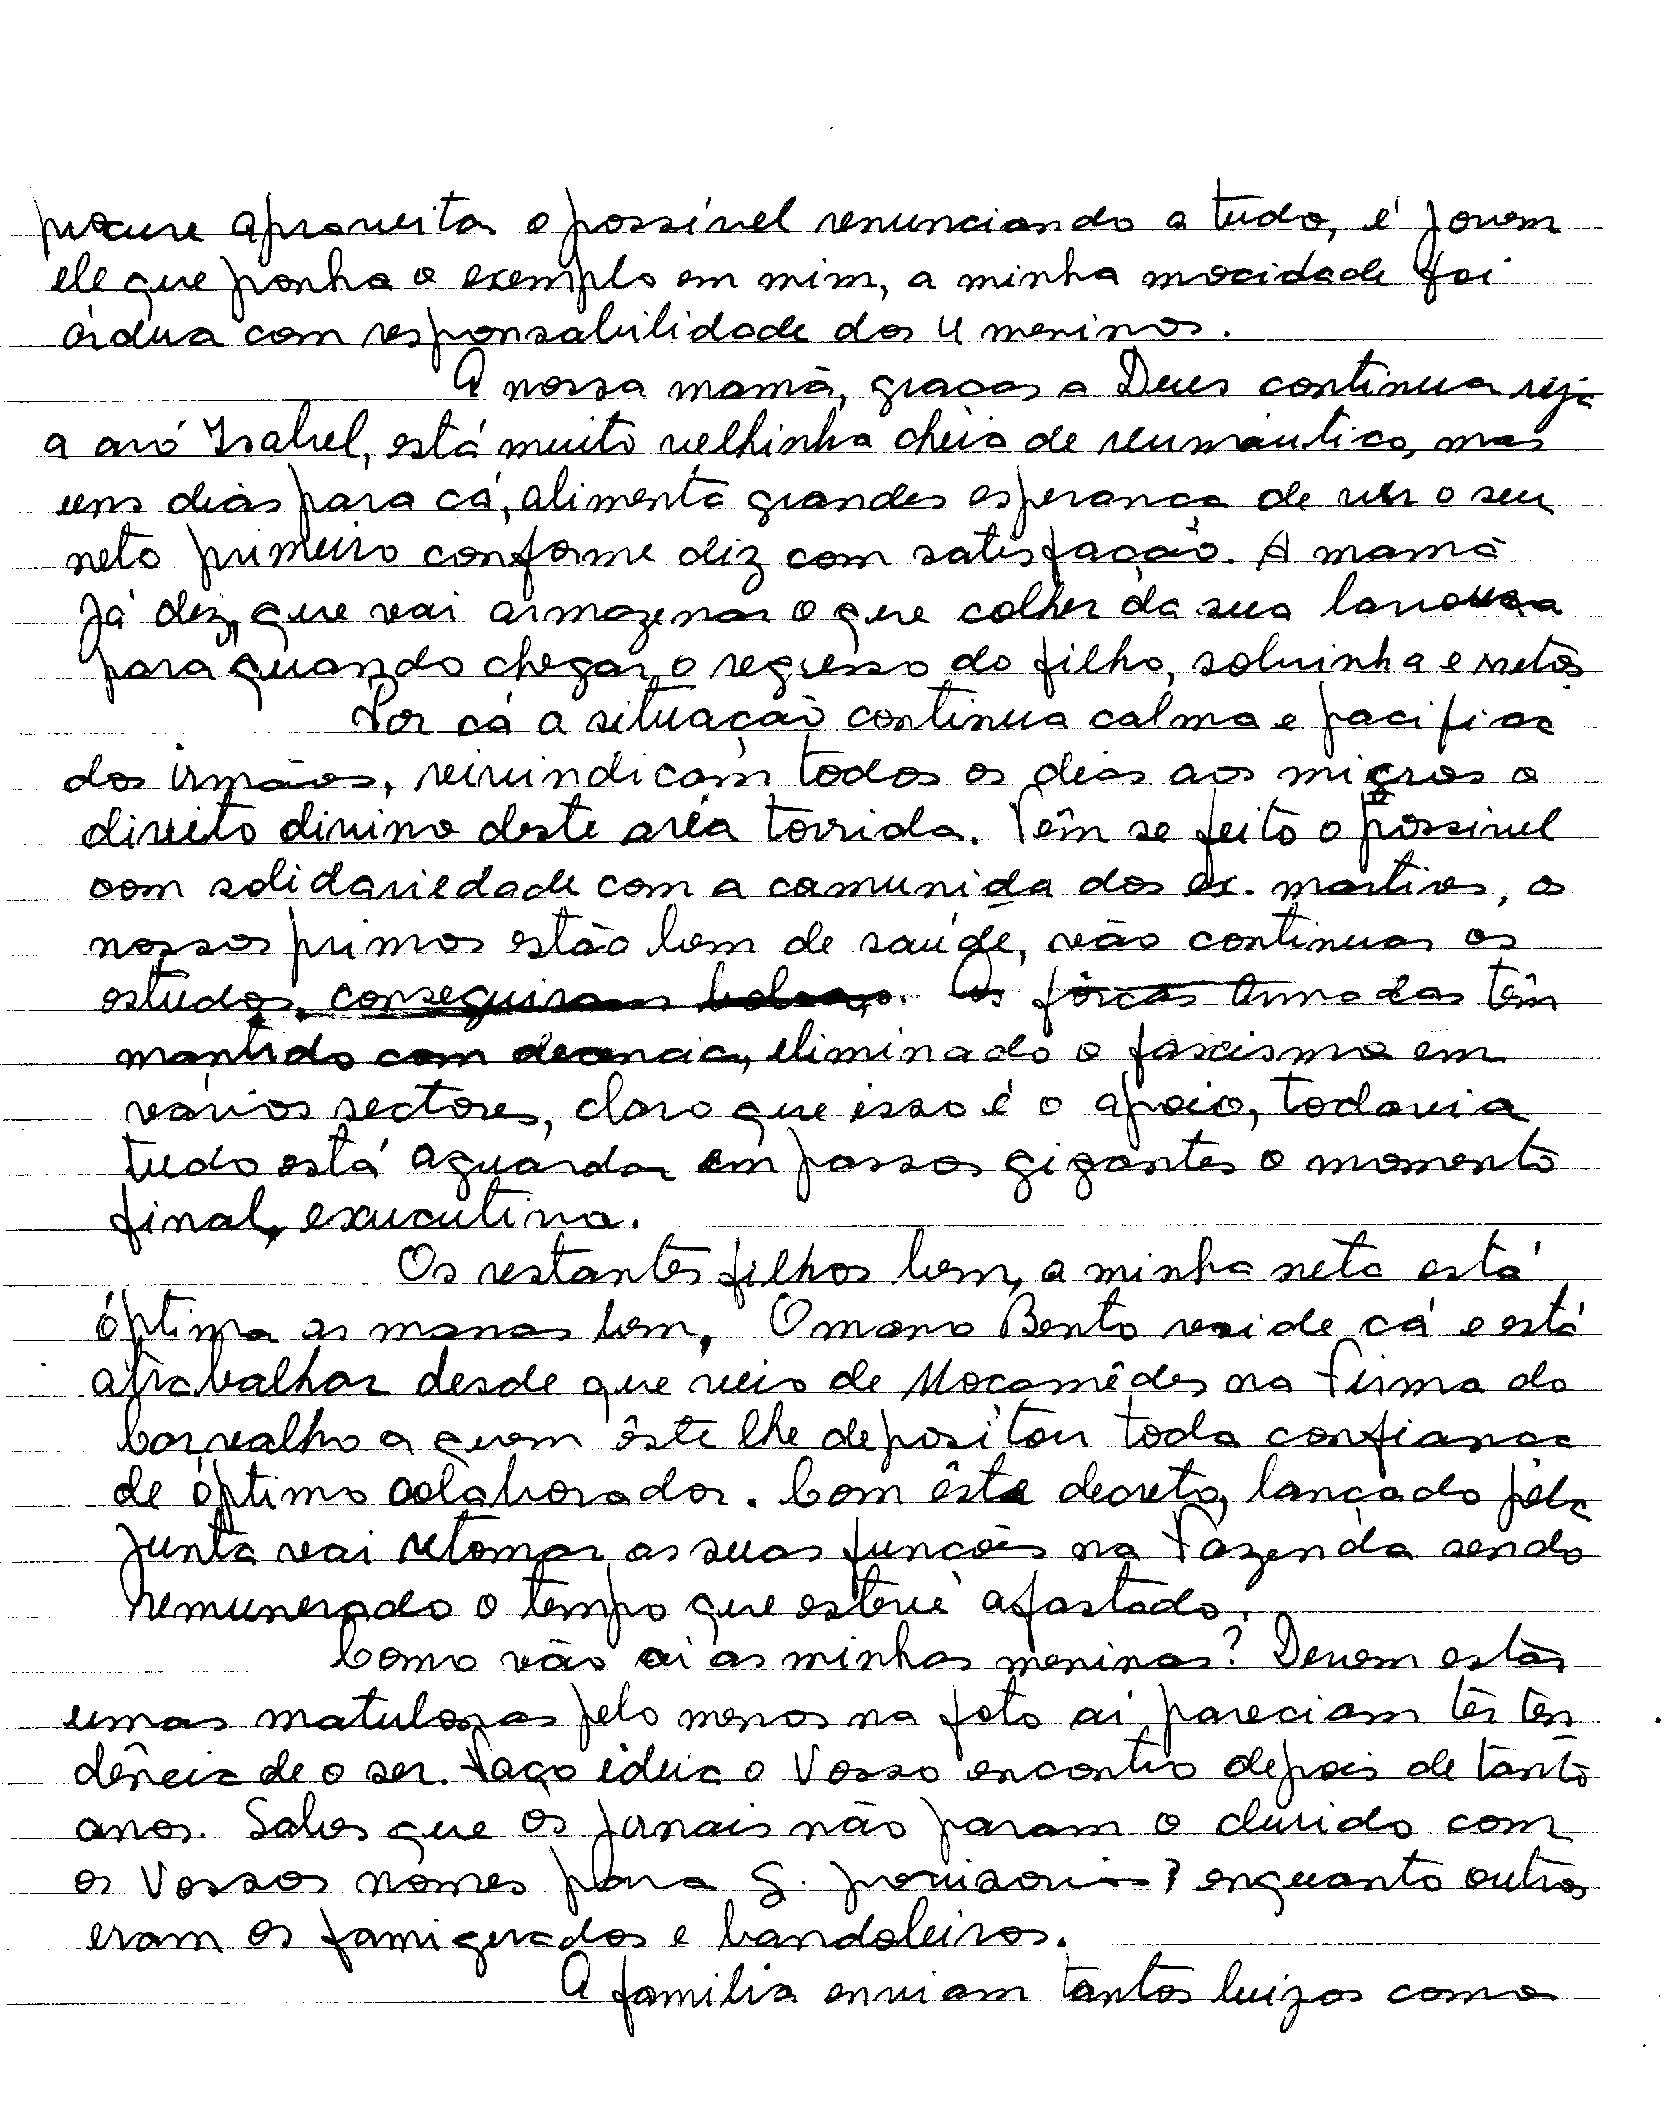 procure aproveitar o possível renunciando a tudo, é jovem
ele que ponha o exemplo em mim, a minha mocidade foi
árdua com responsabilidade dos 4 meninos.
A nossa mamã, graças a Deus continua rija
a avó Isabel, está muito velhinha cheia de reumáutico, mas
uns dias para cá, alimenta grandes esperança de ver o seu
neto primeiro conforme diz com satisfação. A mamã
Já diz, que vai armazenar o que colher da sua lavoura
para quando chegar o regresso do filho, sobrinha e netos
Por cá a situação continua calma e pacifica
dos irmãos, reivindicam todos os dias aos migros o
direito divino deste aréa torrida. Têm se feito o possivel
com solidariedade com a comunida dos ex. martires, os
nossos primos estão bem de saúde, vão continuar os
estudos, conseguiram bolsas. As fôrcas Armadas têm
mantido com decencia, eliminado o fascismo em
vários sectores, claro que isso é o apoio, todavia
tudo está aguardar em passos gigantes o momento
final, executivo.
Os restantes filhos bem, a minha neta está
óptima as manas bem, O mano Bento reside cá e está
a trabalhar desde que veio de Mocamêdes na firma do
Carvalho a quem êste lhe depositou toda confiança
de óptimo colaborador. Com êste decreto, lançado pela
Junta vai retomar as suas funções na Fazenda sendo
remunerado o tempo que esteve afastado.
Como vão aí as minhas meninas? Devem estar
umas matulonas pelo menos na foto aí pareciam ter ten
dência de o ser. Faço ideia o Vosso encontro depois de tanto
anos. Sabes que os jornais não param o duvido com
os Vossos nomes para G. provisorio? enquanto outros
eram os famigerados e bandoleiros.
A familia enviam tantos beijos como